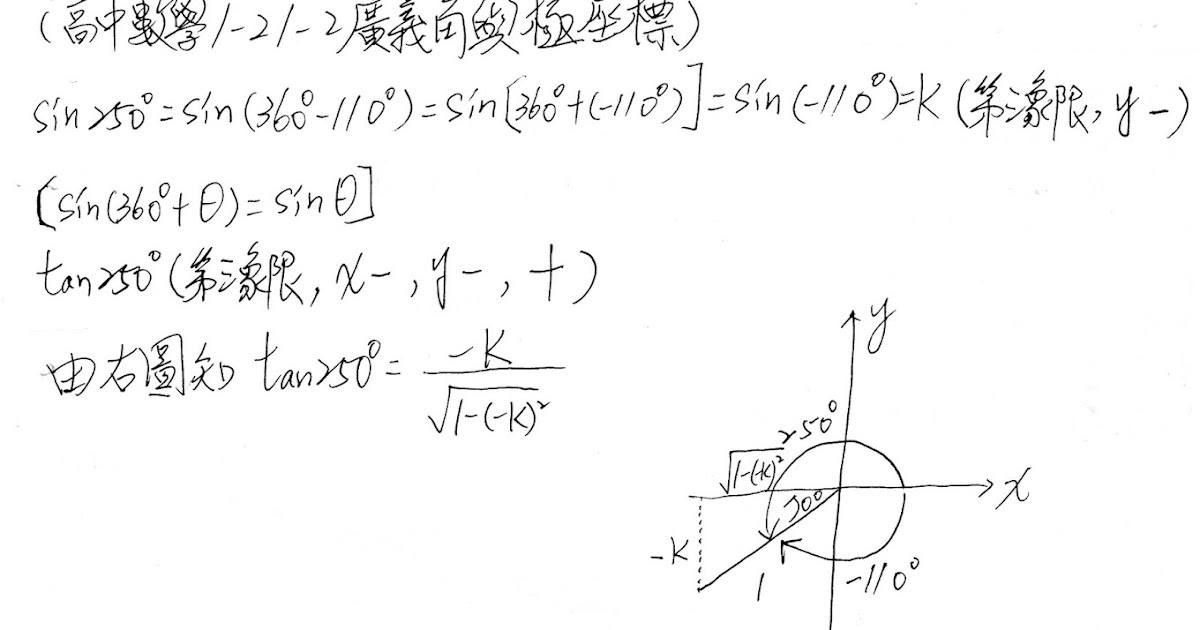 (高中數學1-21-2廣義角與極座標)
sin250°=sin(360°-110°)=sin[360°+(-110°)]=sin(-110°)=K (第三象限, y -)
[sin(360°+θ)=sinθ]
tan250°(第三象限, x-, y-, +)
由右圖知 tan250°= -K / √1-(-K)²
y
250°
√1-(-K)²
70°
x
-K
1
-110°